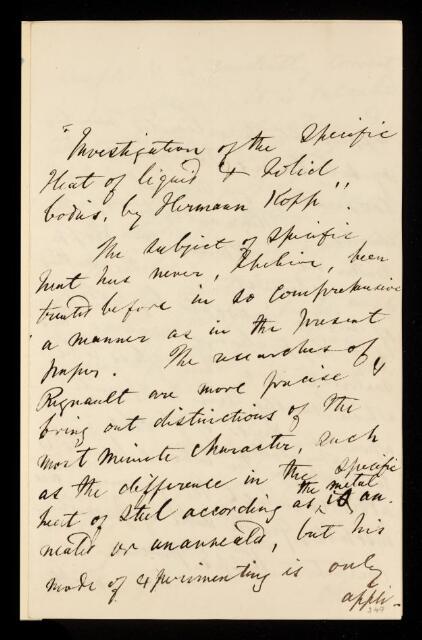 "Investigation of the Specific
Heat of liquid & Solid
bodies, by Hermann Kopp".
The subject of specific
heat has never, I believe, been
treated before in so comprehensive
a manner as in the present
paper. The researches of
Regnault are more precise &
bring out distinctions of the
most minute character, such
as the difference in the specific
heat of steel according as the metal is an-
nealed or unannealed, but his
mode of experimenting is only
appli-
349